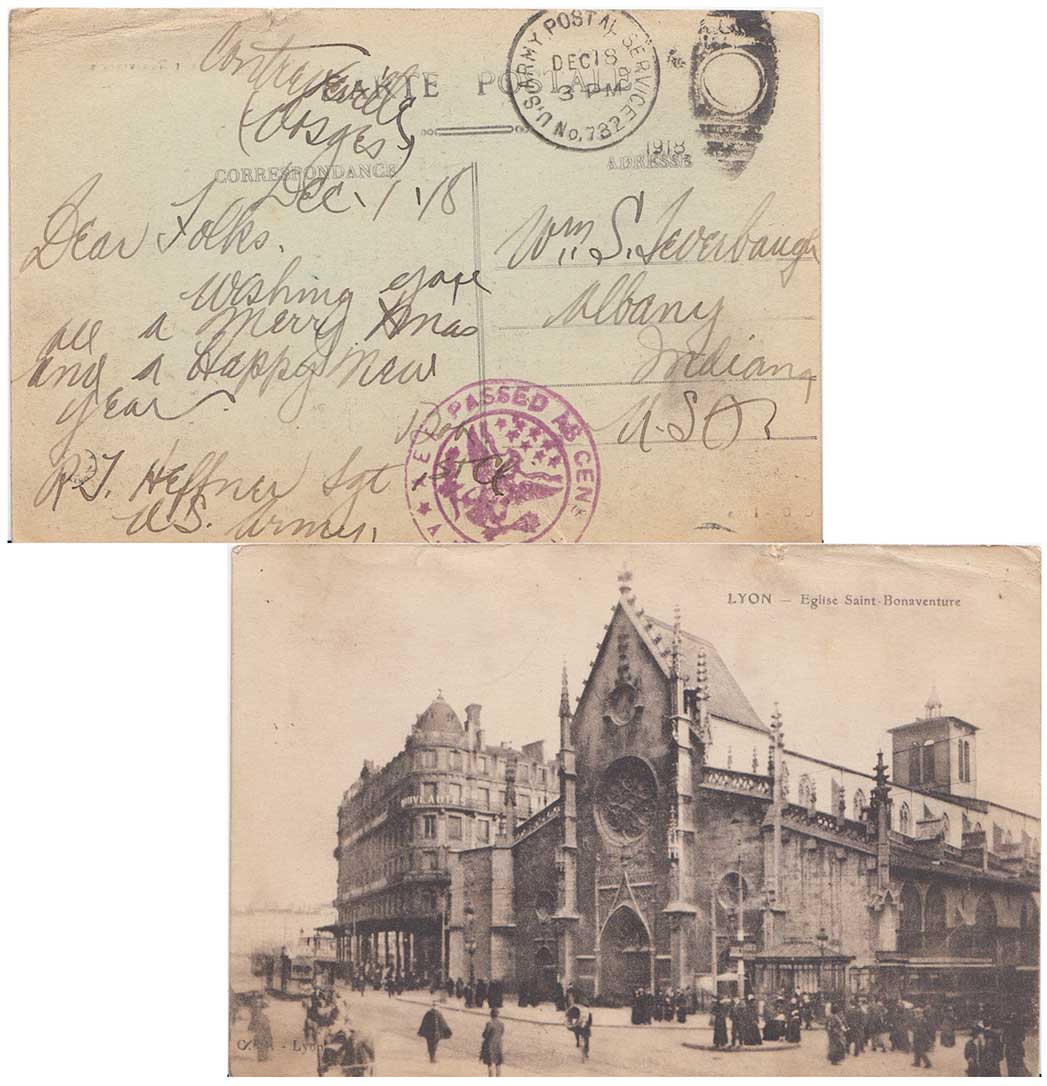 Contrexeville
CARTE POSTALE
(Vosges)
U.S. ARMY POSTAL SERVICE
DEC 18
3 PM
No. 782
1918
CORRESPONDANCE
ADRESSE
Dec. 1 / 18
Dear Folks.
Wishing you
all a Merry Xmas
and a Happy New
Year.
R.J. Heffner Sgt 1st Cl
U.S. Army.
Wm. S. Leverbaugh
Albany
Indiana
U.S.A.
PASSED AS CENS
LYON — Eglise Saint-Bonaventure
NOUVEAUTÉS
- Lyon